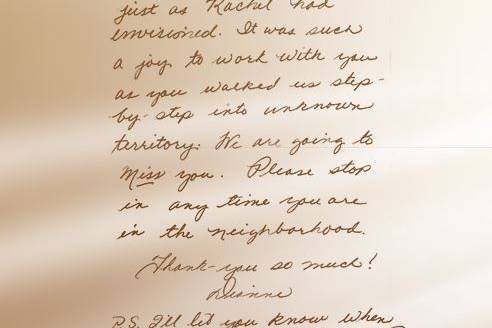 just as Rachel had
envisioned. It was such
a joy to work with you
as you walked us step-
by-step into unknown
territory. We are going to
Miss you. Please stop
in any time you are
in the neighborhood.
Thank-you so much!
Dianne
P.S. I'll let you know when